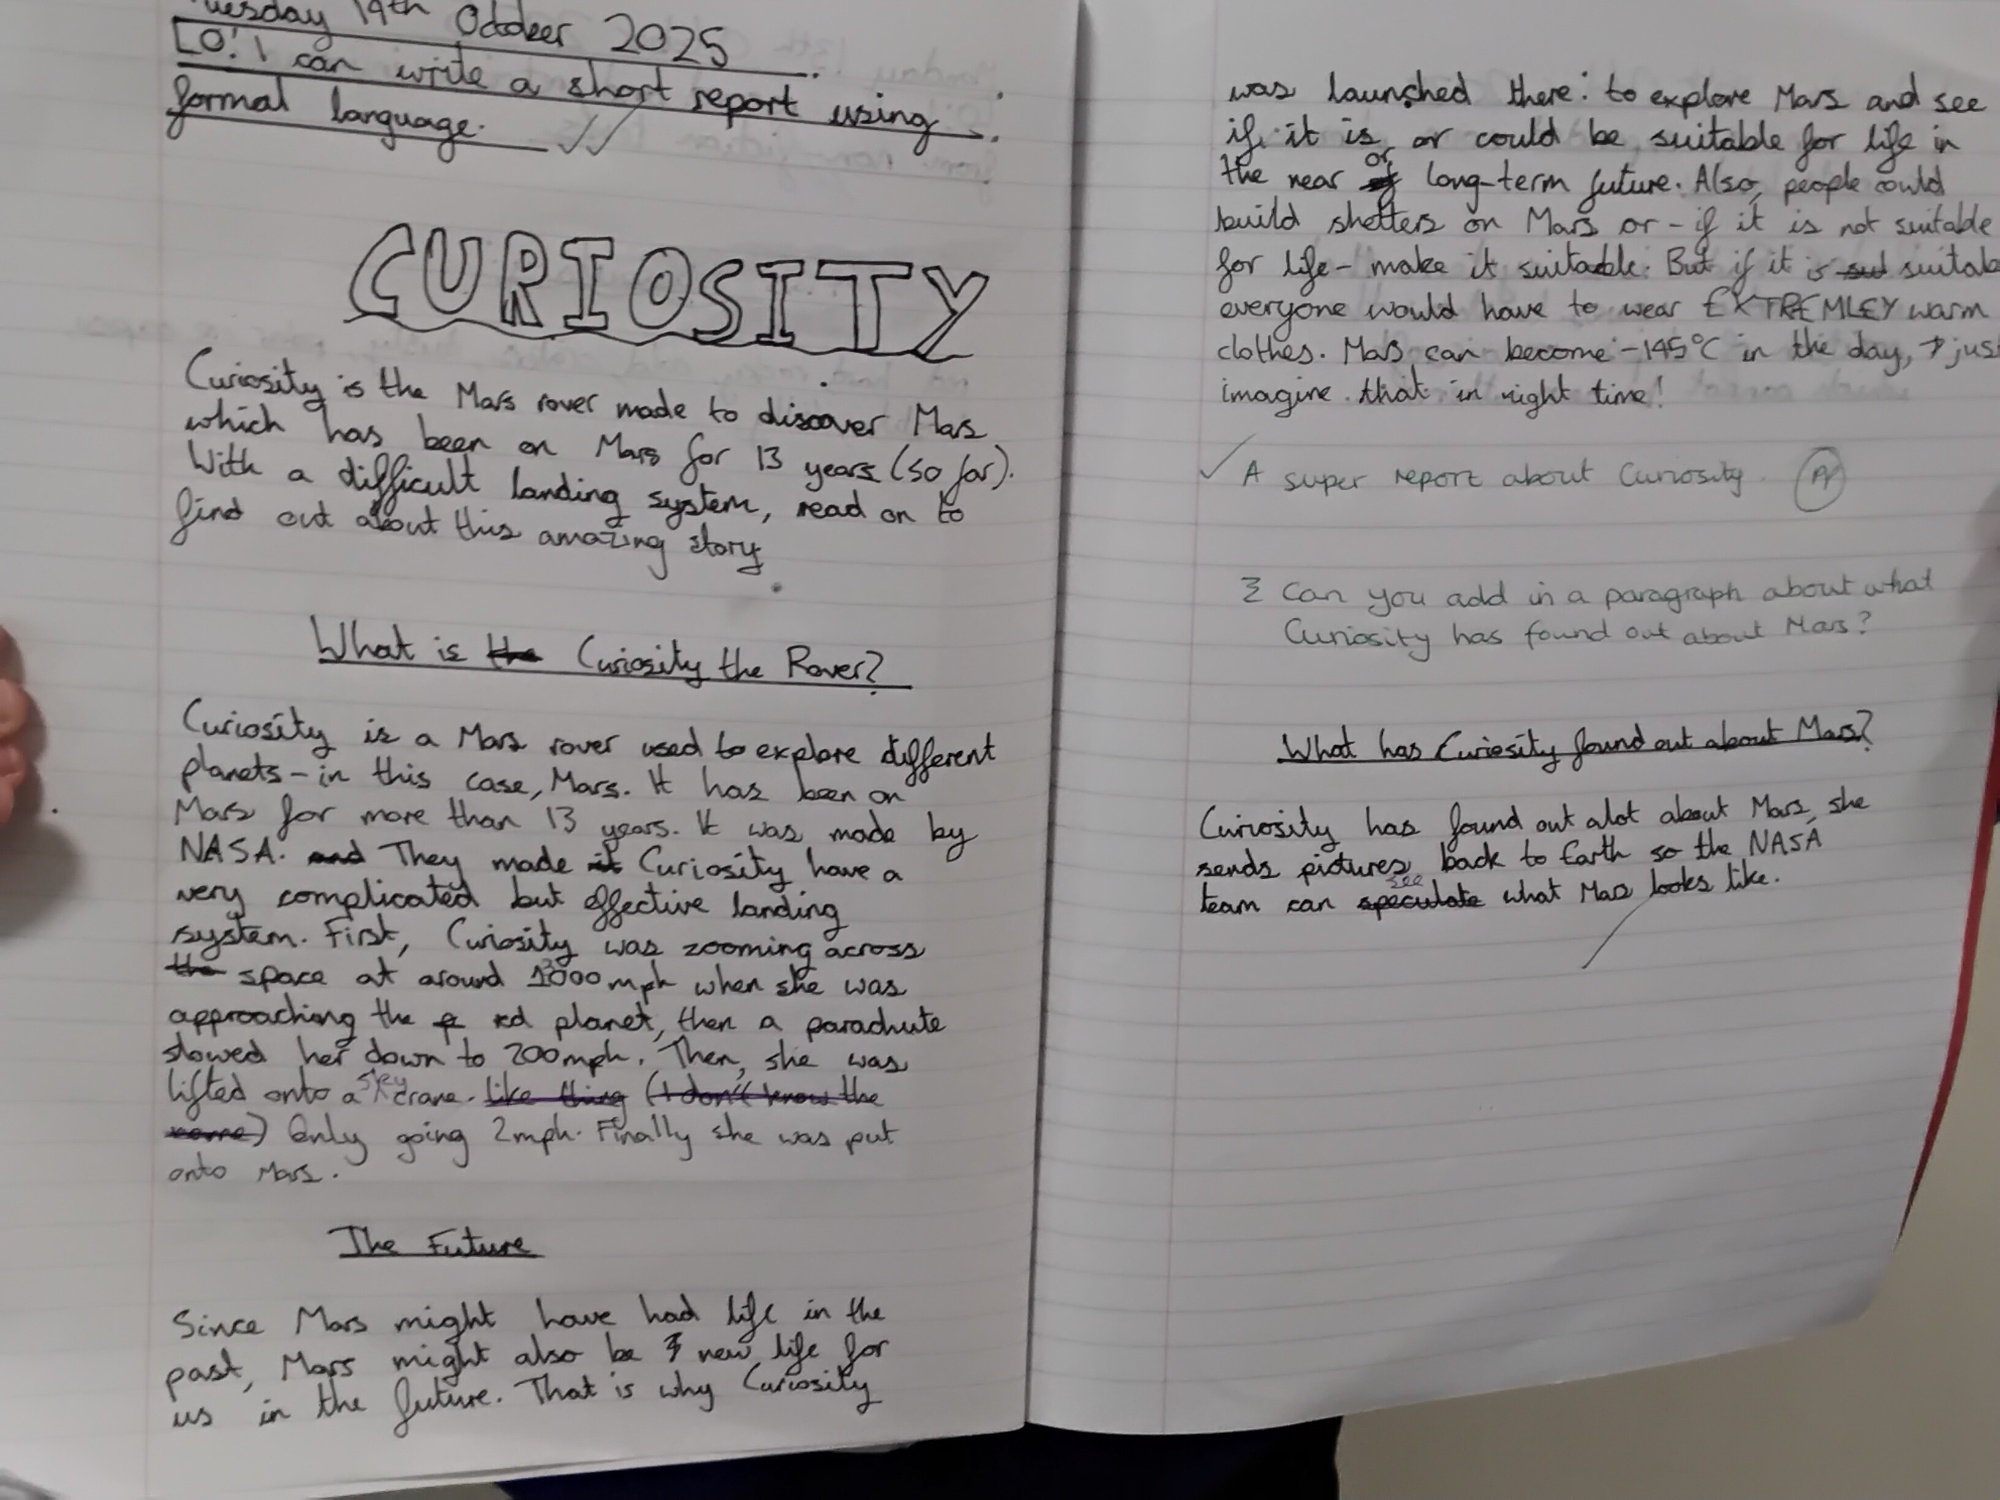 Tuesday 14th October 2025
LO: I can write a short report using
formal language.
CURIOSITY
Curiosity is the Mars rover made to discover Mars
which has been on Mars for 13 years (so far).
With a difficult landing system, read on to
find out about this amazing story.
What is the Curiosity the Rover?
Curiosity is a Mars rover used to explore different
planets - in this case, Mars. It has been on
Mars for more than 13 years. It was made by
NASA. and They made it Curiosity have a
very complicated but effective landing
system. First, Curiosity was zooming across
the space at around 13000 mph when she was
approaching the p red planet, then a parachute
slowed her down to 200mph. Then, she was
lifted onto a sky crane. like thing (I don't know the
name) Only going 2mph. Finally she was put
onto Mars.
The Future
Since Mars might have had life in the
past, Mars might also be new life for
us in the future. That is why Curiosity
was launched there: to explore Mars and see
if it is or could be suitable for life in
the near or of long-term future. Also, people could
build shelters on Mars or - if it is not suitable
for life - make it suitable. But if it is sut suitab
everyone would have to wear EXTREMLEY warm
clothes. Mars can become -145°C in the day, jus
imagine that in night time!
A super report about Curiosity.
Can you add in a paragraph about what
Curiosity has found out about Mars?
What has Curiosity found out about Mars?
Curiosity has found out alot about Mars, she
sends pictures back to Earth so the NASA
team can speculate see what Mars looks like.